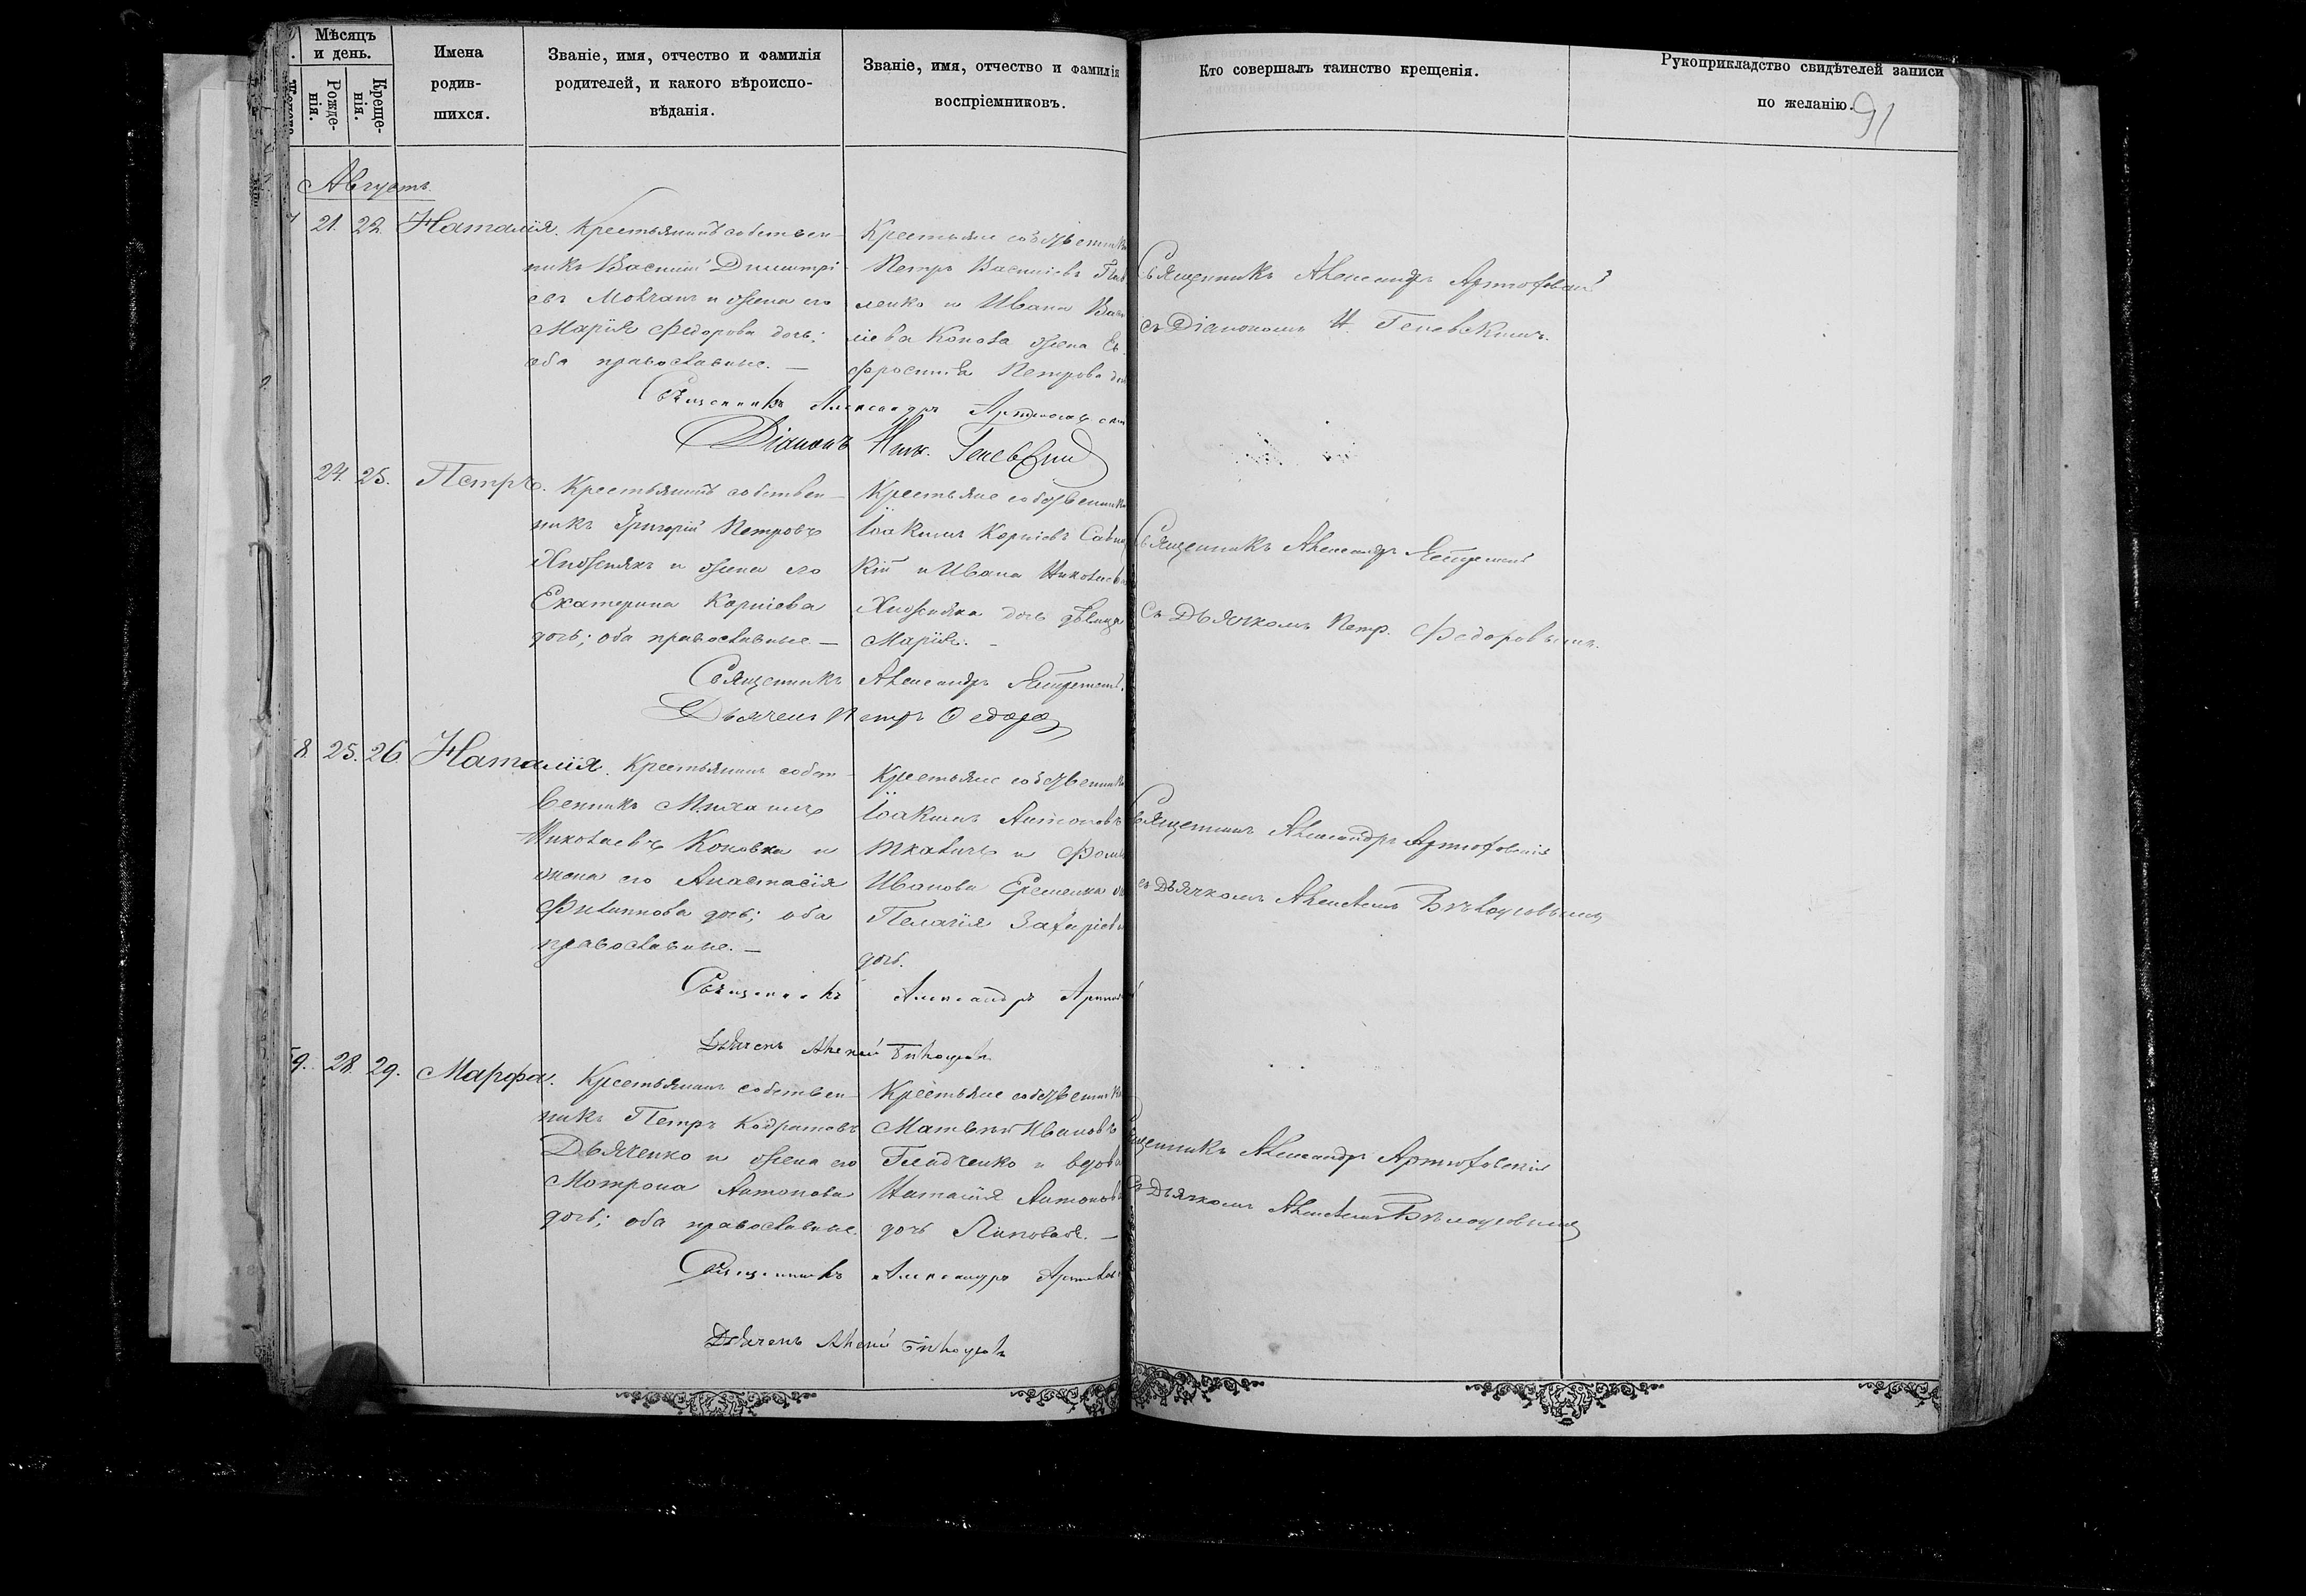 Мѣсяцъ
и день.
Рожде-
нія.
Креще-
нія.
Имена
родив-
шихся.
Званіе, имя, отчество и фамилія
родителей, и какого вѣроиспо-
вѣданія.
Званіе, имя, отчество и фамилія
воспріемниковъ.
Кто совершалъ таинство крещенія.
Рукоприкладство свидѣтелей записи
по желанію.
91
Августъ.
21. 22. Наталія.
Крестьянинъ собствен-
никъ Василій Димитрі-
евъ Мовчанъ и жена его
Марія Федорова дочь;
оба православные. —
Крестьяне собственники
Петръ Василіевъ
ленко и Ивана Васи
ліева Конова жена Ев
фросинія Петрова
Священникъ Александръ
Діаконъ Ник.
Священникъ Александръ
съ Діакономъ Н.
24. 25. Петръ.
Крестьянинъ собствен-
никъ Григорій Петровъ
Хижнякъ и жена его
Екатерина Корніева
дочь; оба православные —
Крестьяне собственники
Іоакимъ Корніевъ
кій и Ивана Николаева
Хижняка дочь дѣвица
Марія. —
Священникъ Александръ
Дьячекъ Петръ
Священникъ Александръ
съ Дьячкомъ Петр. Федоровымъ.
8. 25. 26. Наталія.
Крестьянинъ собст-
венникъ Михаилъ
Николаевъ Коновка и
жена его Анастасія
Филиппова дочь; оба
православные. —
Крестьяне собственники
Іоакимъ Антоновъ
Ткаличъ и
Иванова Еременка
Пелагія Захаріева
дочь.
Священникъ Александръ
Дьячекъ Алексѣй Бѣлоусовъ
Священникъ Александръ Артюховскій
съ Дьячкомъ Алексѣемъ Бѣлоусовымъ
9. 28. 29. Марфа.
Крестьянинъ собствен-
никъ Петръ Кодратовъ
Дьяченко и жена его
Мотрона Антонова
дочь; оба православные.
Крестьяне собственники
Матвѣй Ивановъ
Гладченко и вдова
Наталія Антонова
дочь Липовая. —
Священникъ Александръ
Дьячекъ Алексѣй Бѣлоусовъ
Александръ Артюховскій
съ Дьячкомъ Алексѣемъ Бѣлоусовымъ